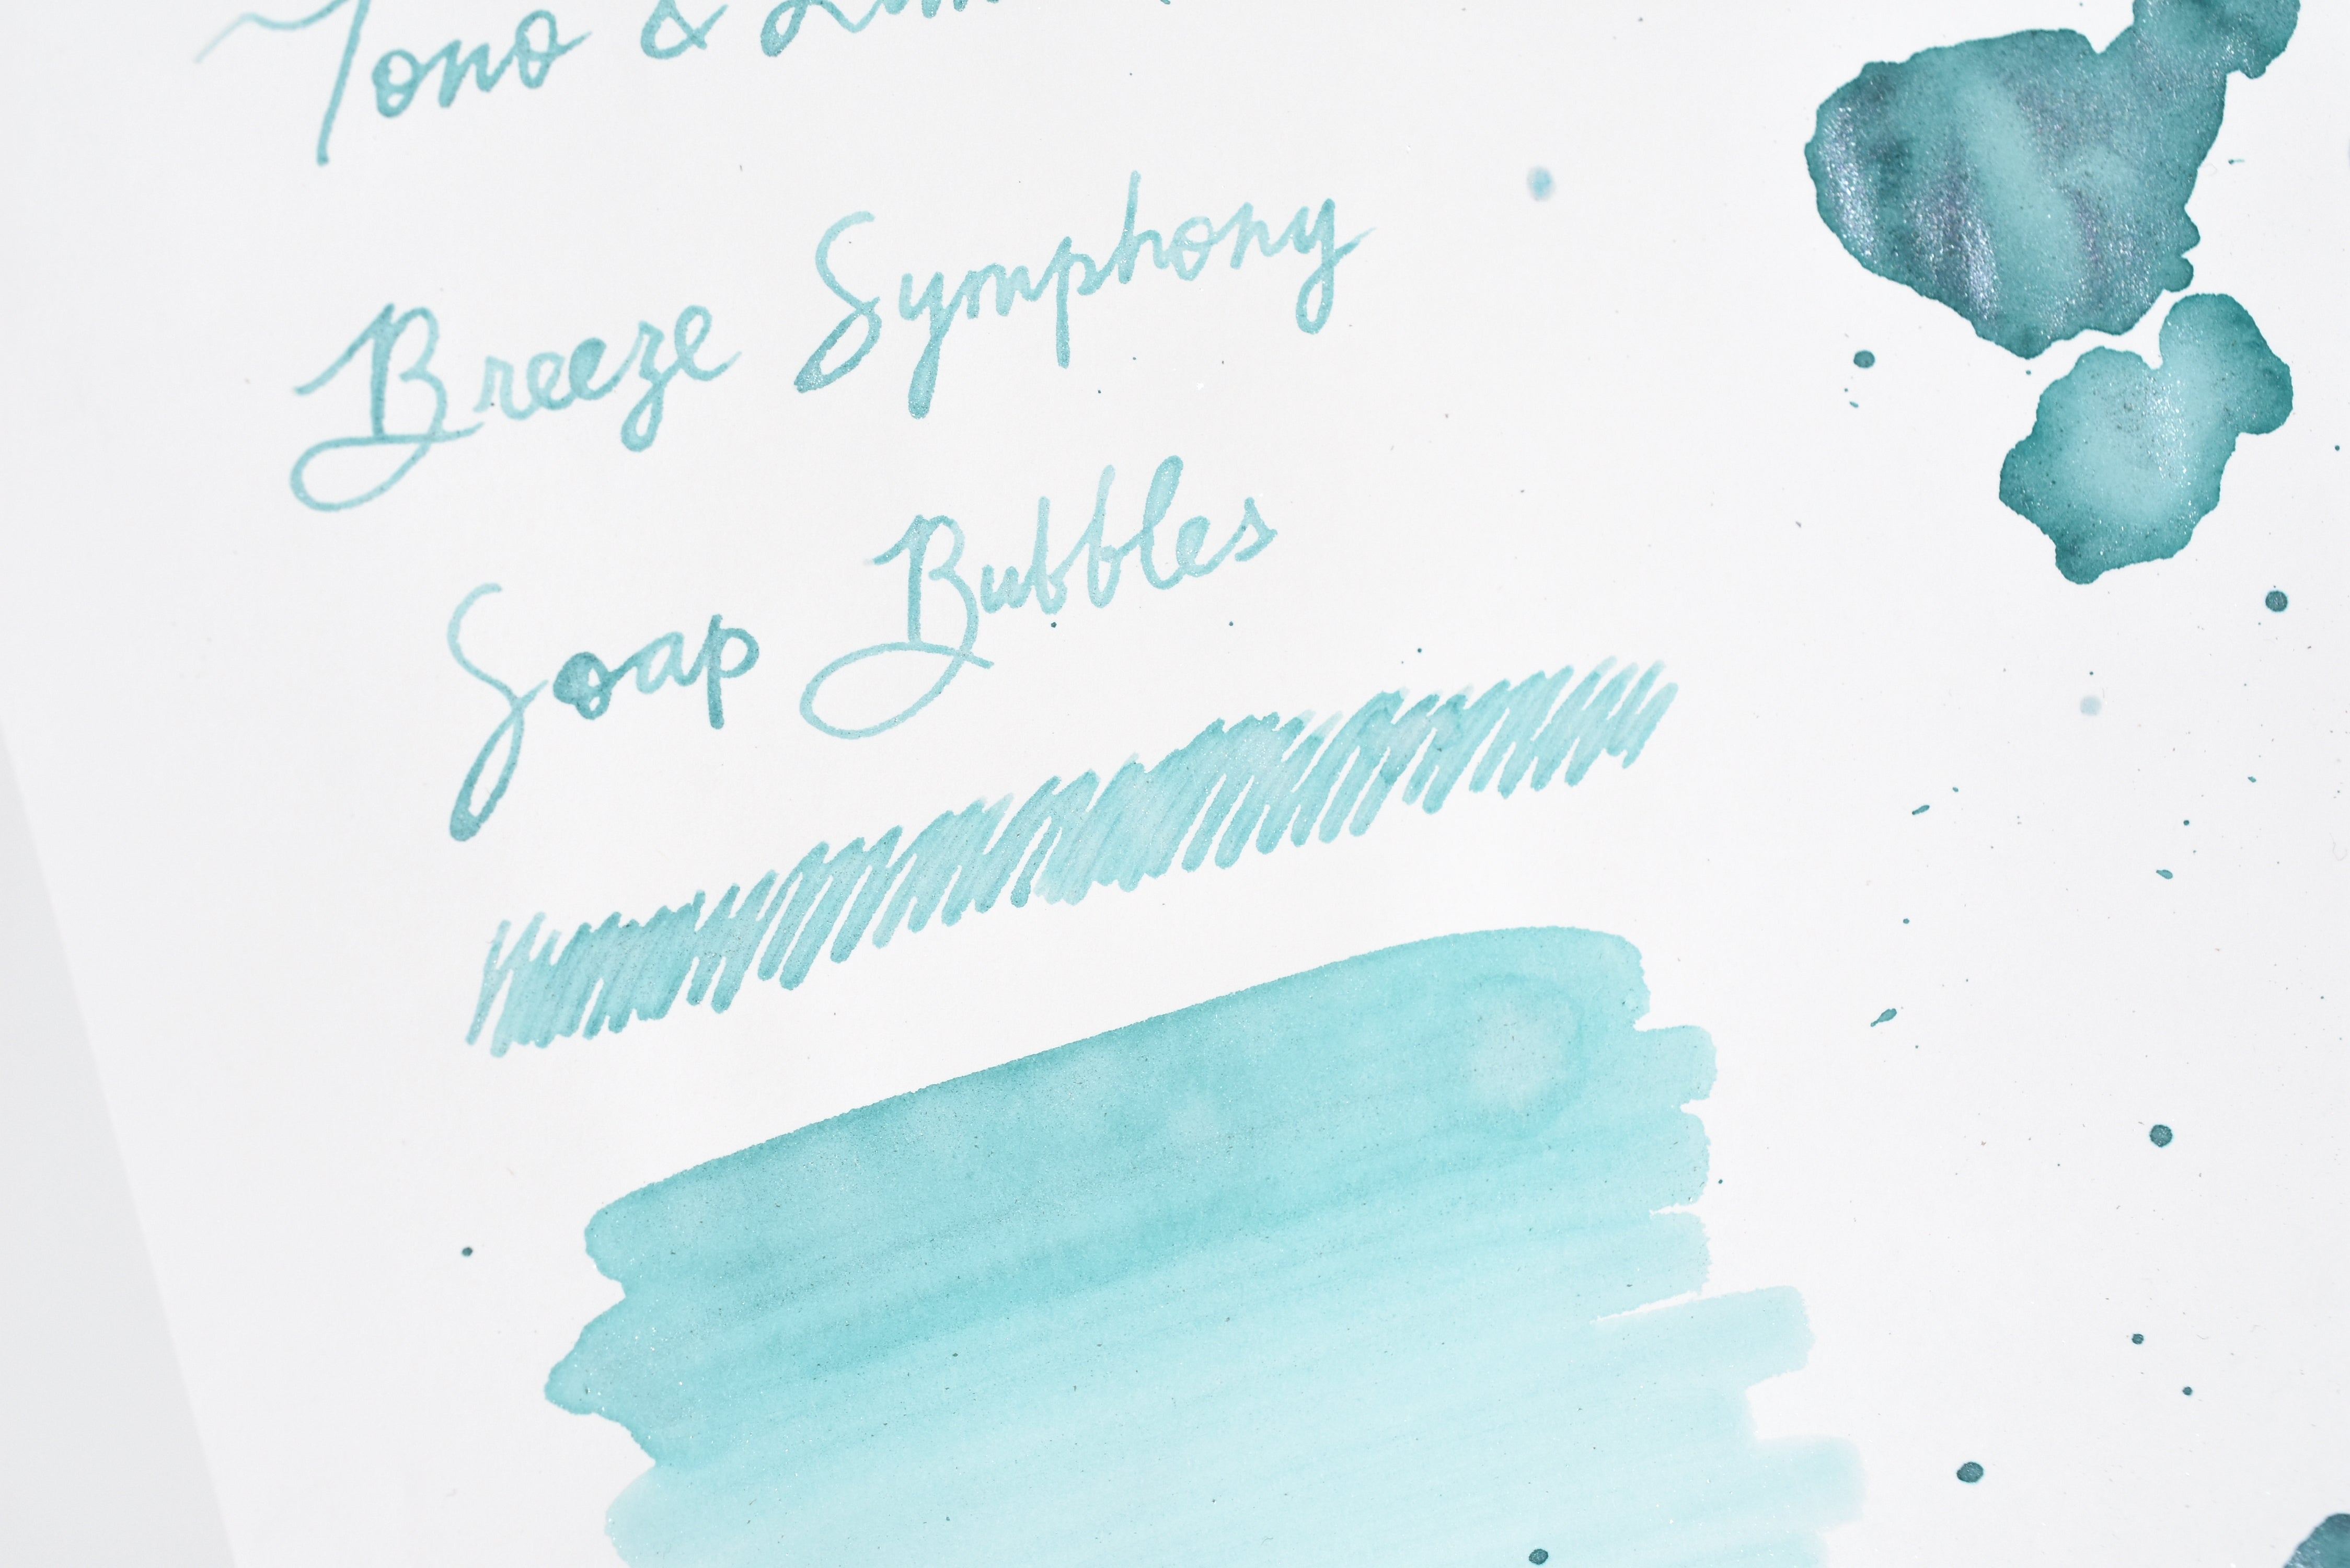 Tono &
Breeze Symphony
Soap Bubbles